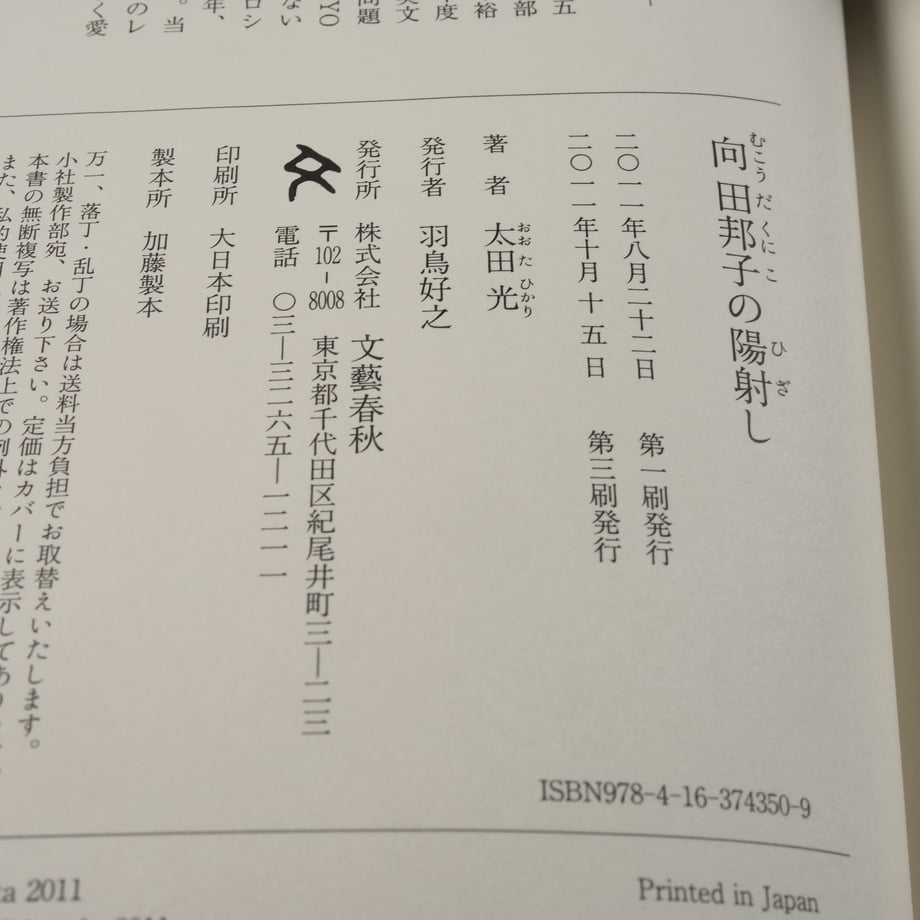 向田邦子の陽射し
むこうだくにこ
ひざ
二〇一一年八月二十二日 第一刷発行
二〇一一年十月十五日 第三刷発行
著者 太田光
おおたひかり
発行者 羽鳥好之
発行所 株式会社 文藝春秋
〒102-8008 東京都千代田区紀尾井町三―二三
電話 〇三―三二六五―一二一一
印刷所 大日本印刷
製本所 加藤製本
万一、落丁・乱丁の場合は送料当方負担でお取替えいたします。
小社製作部宛、お送り下さい。定価はカバーに表示してあり
本書の無断複写は著作権法上での例外
また、私的使用
ISBN978-4-16-374350-9
2011
Printed in Japan